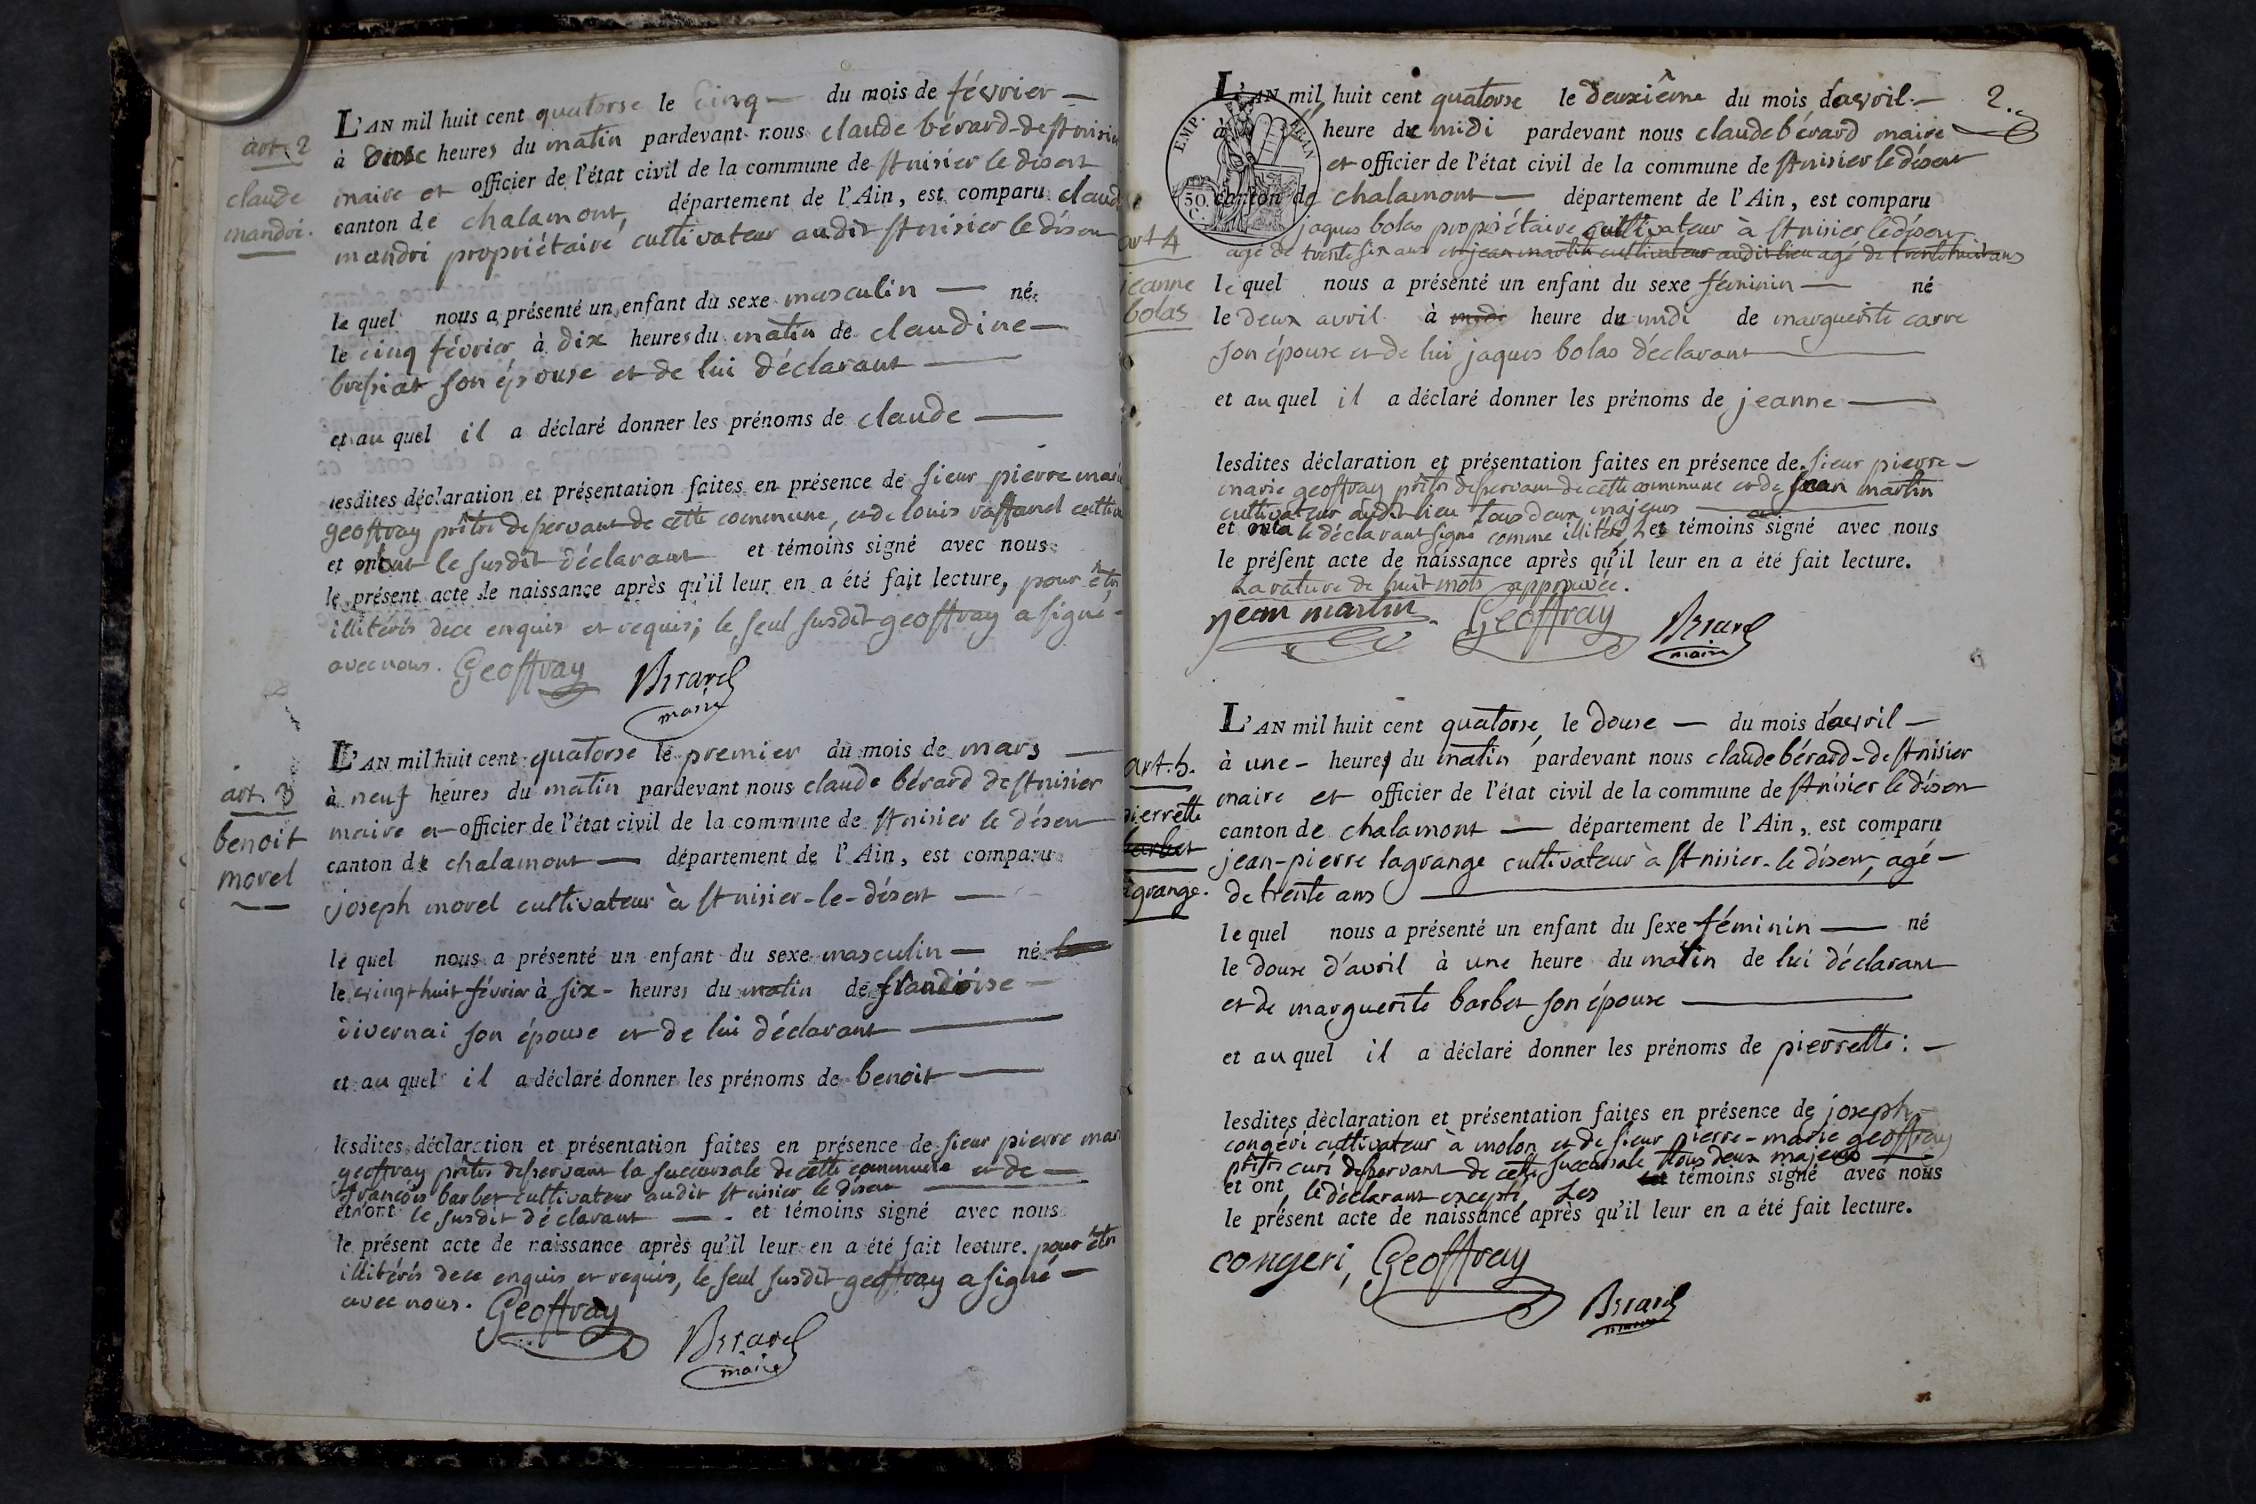 art. 2
claude
mandri.
L'AN mil huit cent quatorse le cinq — du mois de février —
à onse heures du matin pardevant nous claude bérard-de st nisier
maire et officier de l'état civil de la commune de st nisier le désert
canton de chalamont, département de l'Ain, est comparu claude
mandri propriétaire cultivateur audit st nisier le désert
le quel nous a présenté un enfant du sexe masculin — né
le cinq février à dix heures du matin de claudine —
bressiat son épouse et de lui déclarant —
et au quel il a déclaré donner les prénoms de claude —
lesdites déclaration et présentation faites en présence de sieur pierre marie
geoffray prêtre desservant de cette commune, et de louis
et ont le susdit déclarant et témoins signé avec nous
le présent acte de naissance après qu'il leur en a été fait lecture, pour être
illitérés de ce enquis et requis; le seul susdit geoffray a signé —
avec nous. Geoffray Berard
maire
art. 3
benoit
morel
L'AN mil huit cent quatorse le premier du mois de mars —
à neuf heures du matin pardevant nous claude bérard de st nisier
maire et officier de l'état civil de la commune de st nisier le désert
canton de chalamont — département de l'Ain, est comparu
joseph morel cultivateur à st nisier-le-désert —
le quel nous a présenté un enfant du sexe masculin — né
le vingt huit février à six - heures du matin de françoise —
divernai son épouse et de lui déclarant —
et au quel il a déclaré donner les prénoms de benoit —
lesdites déclaration et présentation faites en présence de sieur pierre marie
geoffray prêtre desservant la succursale de cette commune et de —
françois barbet cultivateur audit st nisier le désert —
et ont le susdit déclarant —. et témoins signé avec nous
le présent acte de naissance après qu'il leur en a été fait lecture. pour être
illitérés de ce enquis et requis, le seul susdit geoffray a signé —
avec nous. Geoffray
Berard
maire
2.
EMP. FRAN
50. C.
art 4
jeanne
bolas
L'AN mil huit cent quatorse le deuxième du mois d'avril —
à heure de midi pardevant nous claude bérard maire
et officier de l'état civil de la commune de st nisier le désert
canton de chalamont — département de l'Ain, est comparu
jaques bolas propriétaire cultivateur à st nisier le désert
agé de trente six ans et jean martin cultivateur audit lieu agé de trente huit ans
le quel nous a présenté un enfant du sexe féminin — né
le deux avril à midi heure du midi de marguerite carre
son épouse et de lui jaques bolas déclarant —
et au quel il a déclaré donner les prénoms de jeanne —
lesdites déclaration et présentation faites en présence de sieur pierre —
marie geoffray prêtre desservant de cette commune et de jean martin
cultivateur audit lieu tous deux majeurs —
et le déclarant signé comme illitéré, et témoins signé avec nous
le présent acte de naissance après qu'il leur en a été fait lecture.
La rature de huit mots approuvée.
jean martin Geoffray Berard
maire
art. 5.
pierrette
barbet
lagrange.
L'AN mil huit cent quatorse, le douse — du mois d'avril —
à une - heures du matin pardevant nous claude bérard-de st nisier
maire et officier de l'état civil de la commune de st nisier le désert
canton de chalamont — département de l'Ain, est comparu
jean-pierre lagrange cultivateur à st nisier-le désert, agé —
de trente ans —
le quel nous a présenté un enfant du sexe féminin — né
le douse d'avril à une heure du matin de lui déclarant
et de marguerite barbet son épouse —
et au quel il a déclaré donner les prénoms de pierrette: —
lesdites déclaration et présentation faites en présence de joseph —
congéri cultivateur à molon et de sieur pierre-marie geoffray
prêtre curé desservant de cette succursale tous deux majeurs —
et ont, le déclarant excepté, Les témoins signé avec nous
le présent acte de naissance après qu'il leur en a été fait lecture.
congeri, Geoffray
Berard
maire